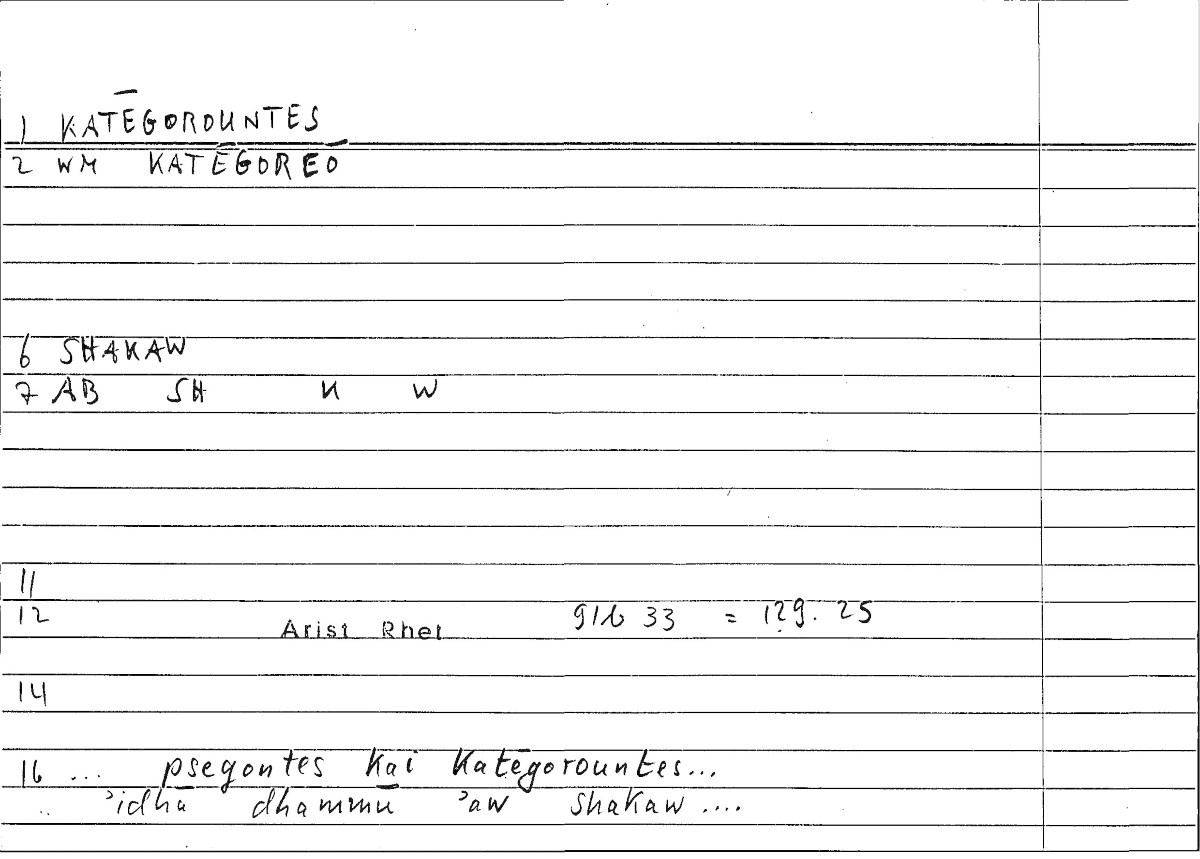 1 KATĒGOROUNTES
2 WM KATĒGOREŌ
6 SHAKAW
7 AB SH K W
11
12 Arist Rhet 91b 33 = 129.25
14
16 ... psegontes kai katēgorountes...
.. ʾidhā dhammū ʾaw shakaw ....